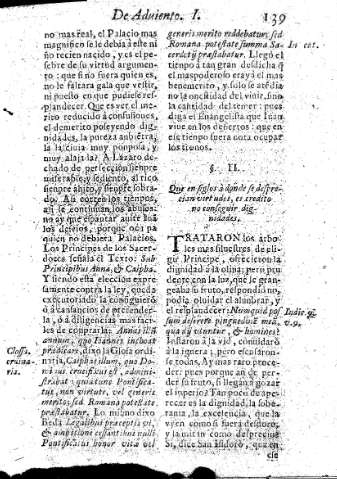 De Adviento. I. 139
no mas real, el Palacio mas
magnifico se le debia à este ni
ño recien nacido, y es el pe-
sebre de su virtud argumen-
to: que si no fuera quien es,
no le faltara gala que vestir,
ni puesto en que pudiese res-
plandecer. Que es ver el me-
rito reducido à confusiones,
el demerito poseyendo dig-
nidades, la pureza abatida,
la lascivia muy pomposa, y
muy alaja la? A Lazaro de-
chado de perfeccion siempre
miserable, y sediento, al rico
siempre ahito, y siempre sobra-
do. Asi corren los tiempos,
asi se continuan los
no ay que espantar
los desiertos, porque oda pa
quien no debiera Palacios.
Los Principes de los Sacer-
dotes señala el Texto: Sub
Principibus Anna, & Caipha.
Y siendo esta eleccion expre-
samente contra la ley, queda
executoriado la consiguierõ
ò à cansancios de pretender-
la, ò à diligencias mas faci-
les de comprarla: Annas illū
annum, quo Ioannes inchoat
prædicare, dixo la Glosa ordi-
naria, Caiphas illum, quo Do-
minus crucifixus est, admini-
strabat, quia tunc Pontifica-
tus, non virtute, vel generis
merito; sed Romana potestate,
præstabatur. Lo mismo dixo
Beda Legalibus præceptis vi,
& ambitione cessantibus nulli
Pontificatus honor vita vel
Glossa
ordina-
ria.
generis merito reddebatur, sed
Romana potestate summa Sa-
cerdotij præstabatur. Llegò el
tiempo à tan gran desdicha q̃
el mas poderoso era ya el mas
benemerito, y solo se atediò
no la cantidad del vivir, sino
la cantidad del tener: pues
diga el Evangelista que Iuan
vive en los desiertos: que en
ese tiempo fuera nota ocupar
los tronos.
§. II.
Que en siglos à donde se despre-
cian virtudes, es credito
no conseguir dig-
nidades.
TRATARON los arbo-
les mas silvestres de eli-
gir Principe, ofrecieron la
dignidad à la oliva; pero pru-
dente con la luz, que le gran-
geaba si fruto, respondiò no
podia olvidar el alumbrar, y
el resplandecer: Nunquid pos-
sum deserere pinguedinē meā,
qua dij utuntur, & homines?
Instaron à la vid, convidarõ
à la higuera; pero escusaron-
se todas. Ay mas raro proce-
der: pues porque an de per-
der su fruto, si llegan à gozar
el imperio? Tan poco de ape-
tecer es la dignidad, la sobe-
rania, la excelencia, que la
huyen como si fuera desdoro,
y la mit n como desprecio?
Si, dice San Isidoro, que en
ese
In cat.
Iudic. 9.
v.9.